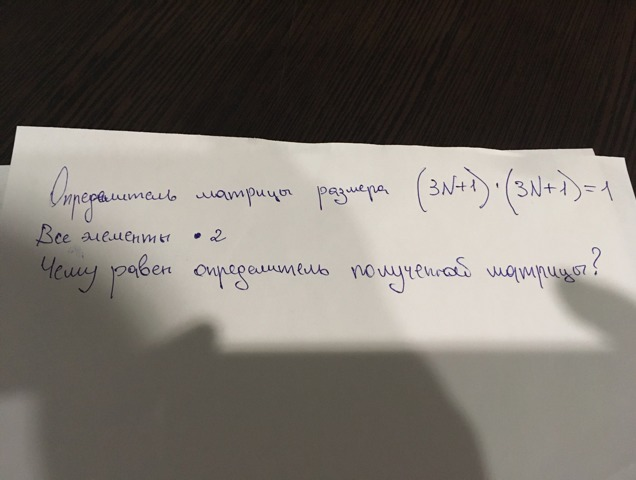 Определитель матрицы размера (3N+1)·(3N+1)=1
Все элементы · 2
Чему равен определитель полученной матрицы?